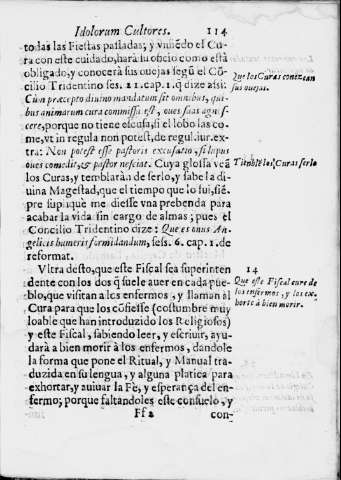 Idolorum Cultores. 114
todas las Fiestas passadas; y viniẽdo el Cu-
ra con este cuidado, harà lu oficio como està
obligado, y conocerà sus ouejas segũ el Cõ-
cilio Tridentino ses. 21. cap. 1. q̃ dize assi:
Cùm præcepto diuino mandatum sit omnibus, qui-
bus animarum cura commissa est, oues suas agnos-
cere, porque no tiene escusa, si el lobo las co-
me, vt in regula non potest, de regul. iur. ex-
tra: Non potest esse pastoris excusatio, si lupus
oues comedit, & pastor nesciat. Cuya glossa veã
los Curas, y temblaràn de serlo, y sabe la di-
uina Magestad, que el tiempo que lo fui, siẽ-
pre supliquè me diesse vna prebenda para
acabar la vida sin cargo de almas; pues el
Concilio Tridentino dize: Que es onus An-
gelicis humeris formidandum, sess. 6. cap. 1. de
reformat.
Vltra desto, que este Fiscal sea superinten
dente con los dos q̃ suele auer en cada pue-
blo, que visitan a los enfermos, y llaman àl
Cura para que los cõfiesse (costumbre muy
loable que han introducido los Religiosos)
y este Fiscal, sabiendo leer, y escriuir, ayu-
darà a bien morir à los enfermos, dandole
la forma que pone el Ritual, y Manual tra-
duzida en su lengua, y alguna platica para
exhortar, y auiuar la Fè, y esperança del en-
fermo; porque faltandoles este consuelo, y
Ff 2 con-
Que los Curas conozcan
sus ouejas.
Tiemblẽ los Curas serlo
14
Que este Fiscal cure de
los enfermos, y los ex-
horte à bien morir.